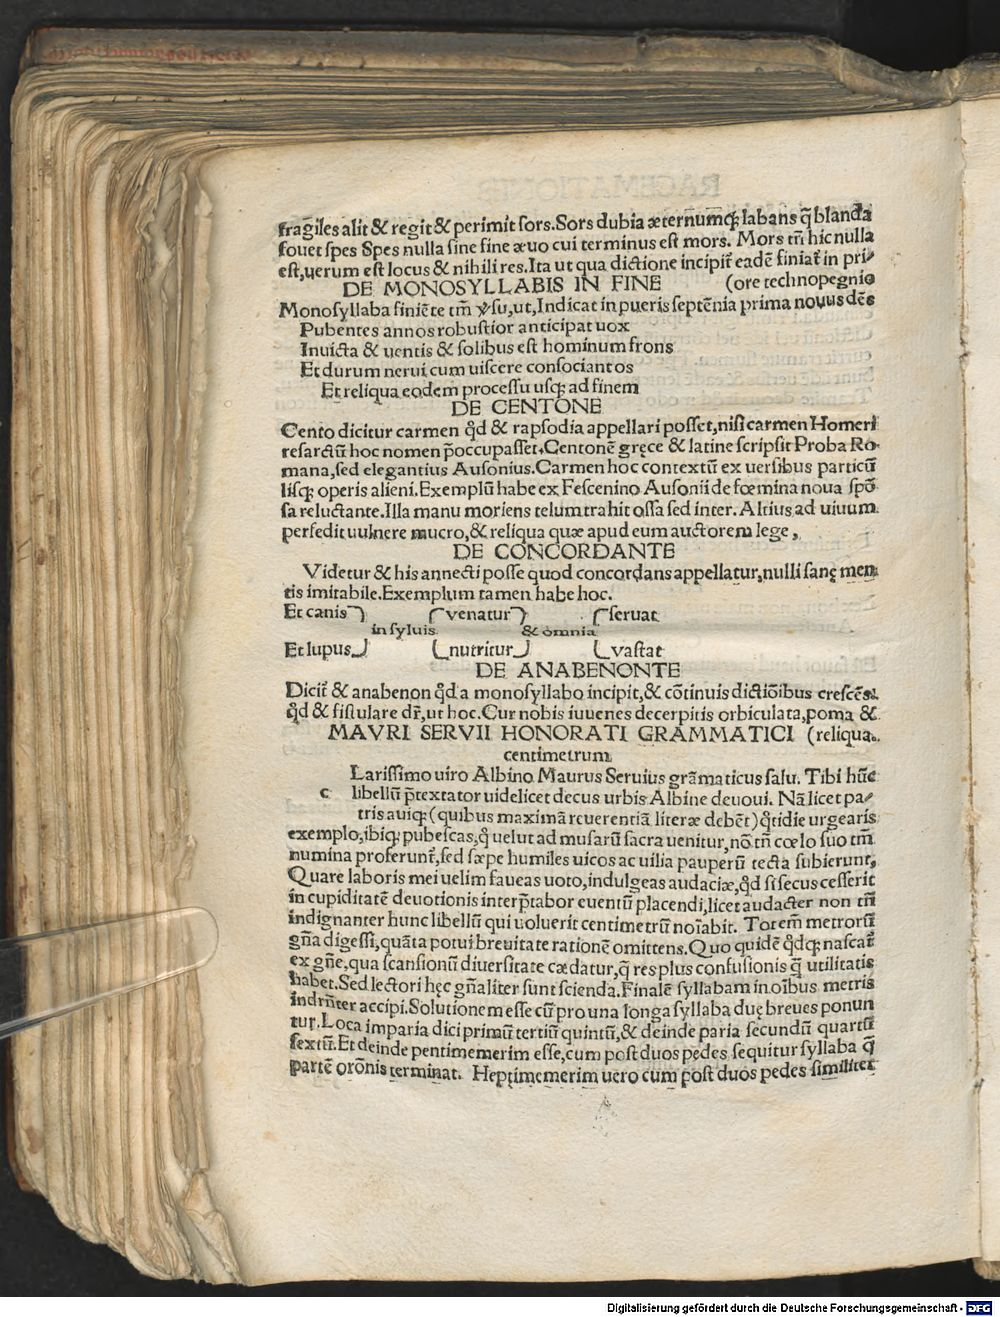 fragiles alit & regit & perimit sors. Sors dubia æternumq; labans q̃ blanda
fouet spes Spes nulla sine fine æuo cui terminus est mors. Mors tñ hic nulla
est, uerum est locus & nihili res. Ita ut qua dictione incipit̃ eadẽ finiat̃ in pri-
DE MONOSYLLABIS IN FINE (ore technopegnio
Monosyllaba finiẽte tm̃ ꝟsu, ut, Indicat in pueris septẽnia prima nouus dẽs
Pubentes annos robustior anticipat uox
Inuicta & uentis & solibus est hominum frons
Et durum nerui cum uiscere consociant os
Et reliqua eodem processu usq; ad finem
DE CENTONE
Cento dicitur carmen qd̃ & rapsodia appellari posset, nisi carmen Homeri
resarctũ hoc nomen p̃occupasset. Centonẽ gręce & latine scripsit Proba Ro-
mana, sed elegantius Ausonius. Carmen hoc contextũ ex uersibus particũ
lisq; operis alieni. Exemplũ habe ex Fescenino Ausonii de fœmina noua spõ
sa reluctante. Illa manu moriens telum trahit ossa sed inter. Altius ad uiuum
persedit uulnere mucro, & reliqua quæ apud eum auctorem lege,
DE CONCORDANTE
Videtur & his annecti posse quod concordans appellatur, nulli sanę men
tis imitabile. Exemplum tamen habe hoc.
Et canis venatur seruat
in syluis & omnia
Et lupus nutritur vastat
DE ANABENONTE
Dicit̃ & anabenon qd̃ a monosyllabo incipit, & cõtinuis dictiõibus crescẽs.
qd̃ & fistulare dr̃, ut hoc. Cur nobis iuuenes decerpitis orbiculata, poma &
MAVRI SERVII HONORATI GRAMMATICI (reliqua.
centimetrum
Larissimo uiro Albino Maurus Seruius grãmaticus salu. Tibi hũc
c libellũ p̃textator uidelicet decus urbis Albine deuoui. Nã licet pa-
tris auiq; (quibus maximã reuerentiã literæ debẽt) q̃tidie urgearis
exemplo, ibiq; pubescas, q̃ uelut ad musarũ sacra uenitur, nõ tñ cœlo suo tm̃
numina proferunt̃, sed sæpe humiles uicos ac uilia pauperũ tecta subierunt,
Quare laboris mei uelim faueas uoto, indulgeas audaciæ, qd̃ si secus cesserit
in cupiditatẽ deuotionis interp̃tabor euentũ placendi, licet audacter non tñ
indignanter hunc libellũ qui uoluerit centimetrũ noĩabit. Totem̃ metrorũ
gña digessi, quãta potui breuitate rationẽ omittens. Quo quidẽ qd̃q; nascat̃
ex gñe, qua scansionũ diuersitate cædatur, q̃ res plus confusionis q̃ utilitatis
habet. Sed lectori hęc gñaliter sunt scienda. Finalẽ syllabam in oĩbus metris
indrñter accipi. Solutionem esse cũ pro una longa syllaba duę breues ponun
tur. Loca imparia dici primũ tertiũ quintũ, & deinde paria secundũ quartũ
sextũ. Et deinde pentimemerim esse, cum post duos pedes sequitur syllaba q̃
partẽ orõnis terminat. Heptimemerim uero cum post duos pedes similiter
Digitalisierung gefördert durch die Deutsche Forschungsgemeinschaft - DFG